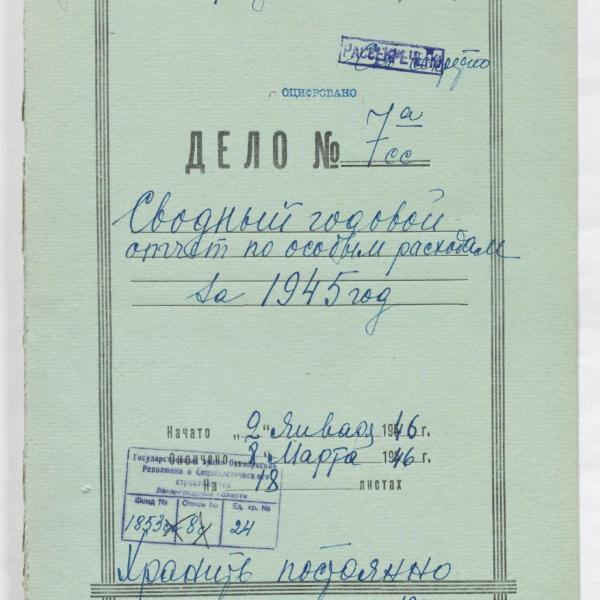 РАССЕКРЕЧЕНО
Сов. секретно
ОЦИФРОВАНО
ДЕЛО № 7а
7сс
Сводный годовой
отчет по особым расходам
за 1945 год
Начато „2" Января 1946 г.
Окончено 8 Марта 1946 г.
На 18 листах
Государственный архив Октябрьской
Революции и Социалистического
строительства
Ленинградской области
Фонд № Описи № Ед. хр. №
1853 8 24
Хранить постоянно